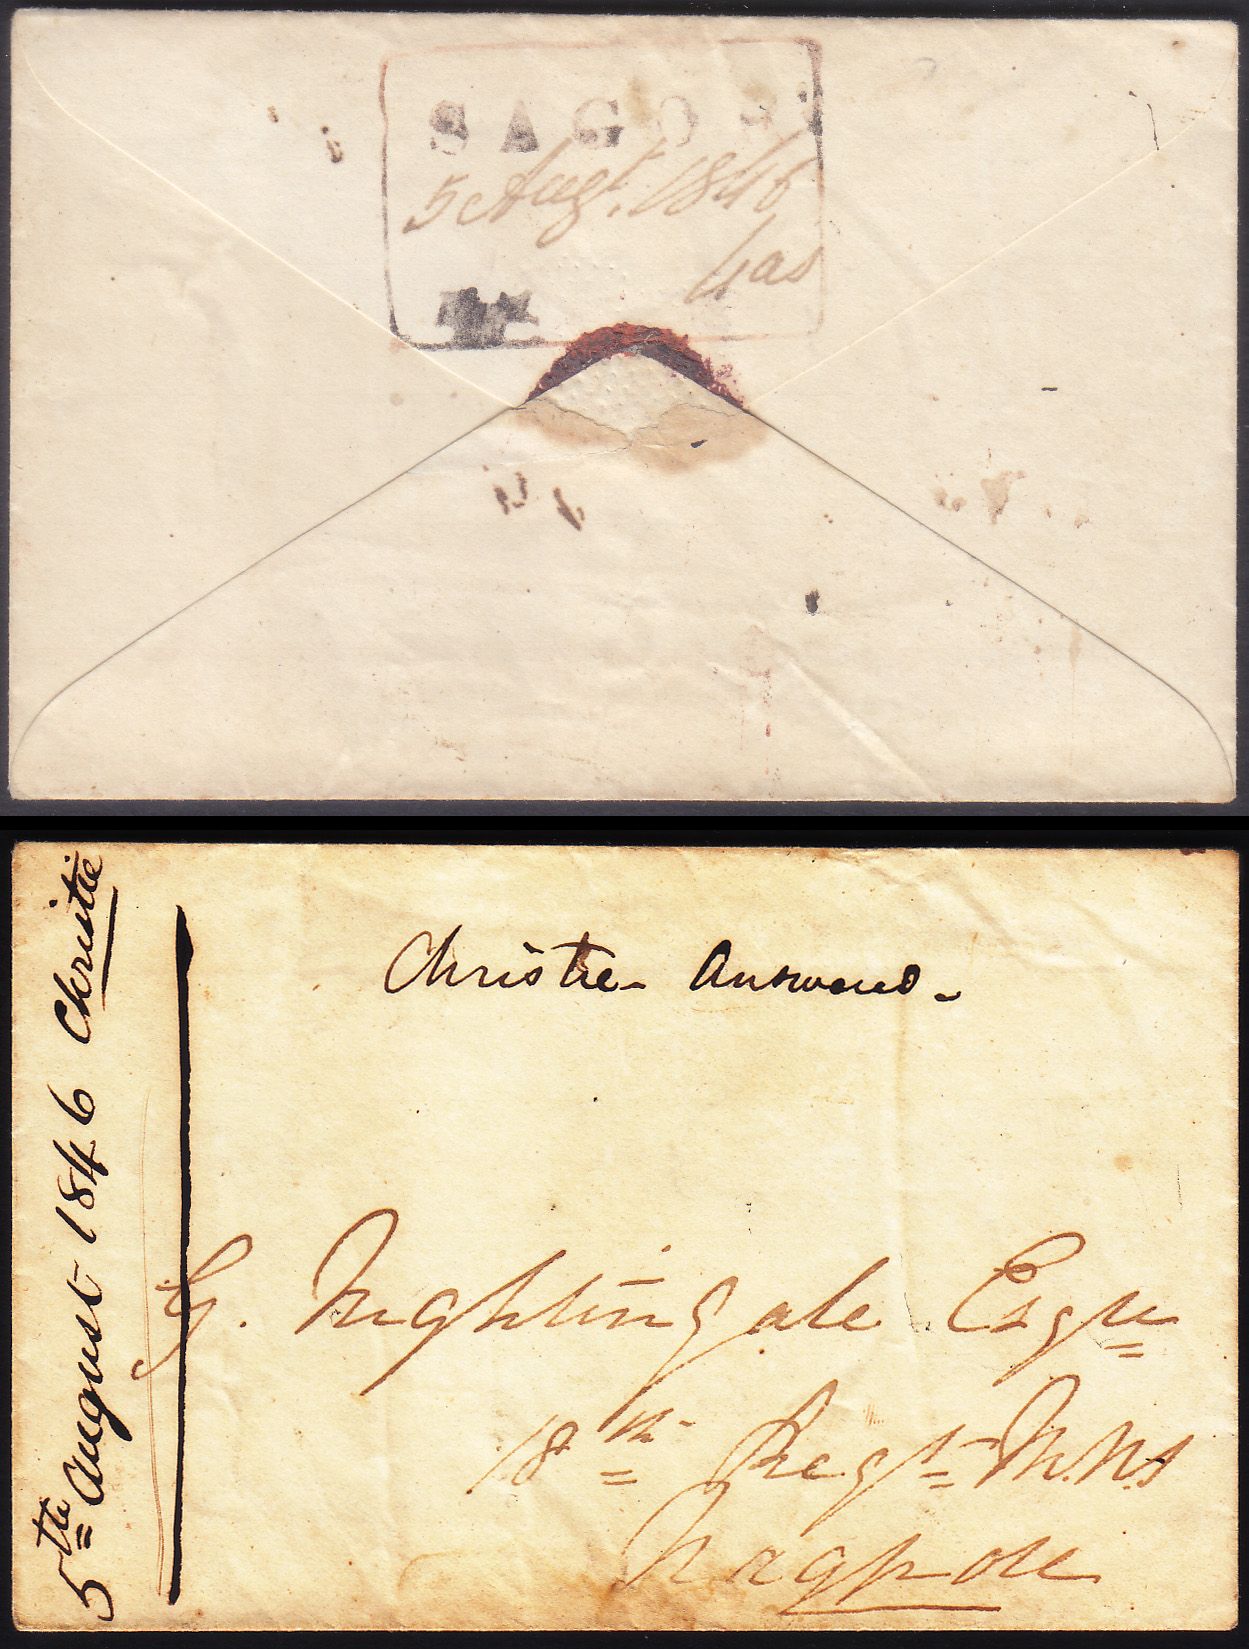 SAGOR
5 Augt. 1846
4 as
5th August 1846 Christie
Christie - Answered -
G. Nightingale Esqre
18th Regt M.N.I
Nagpore